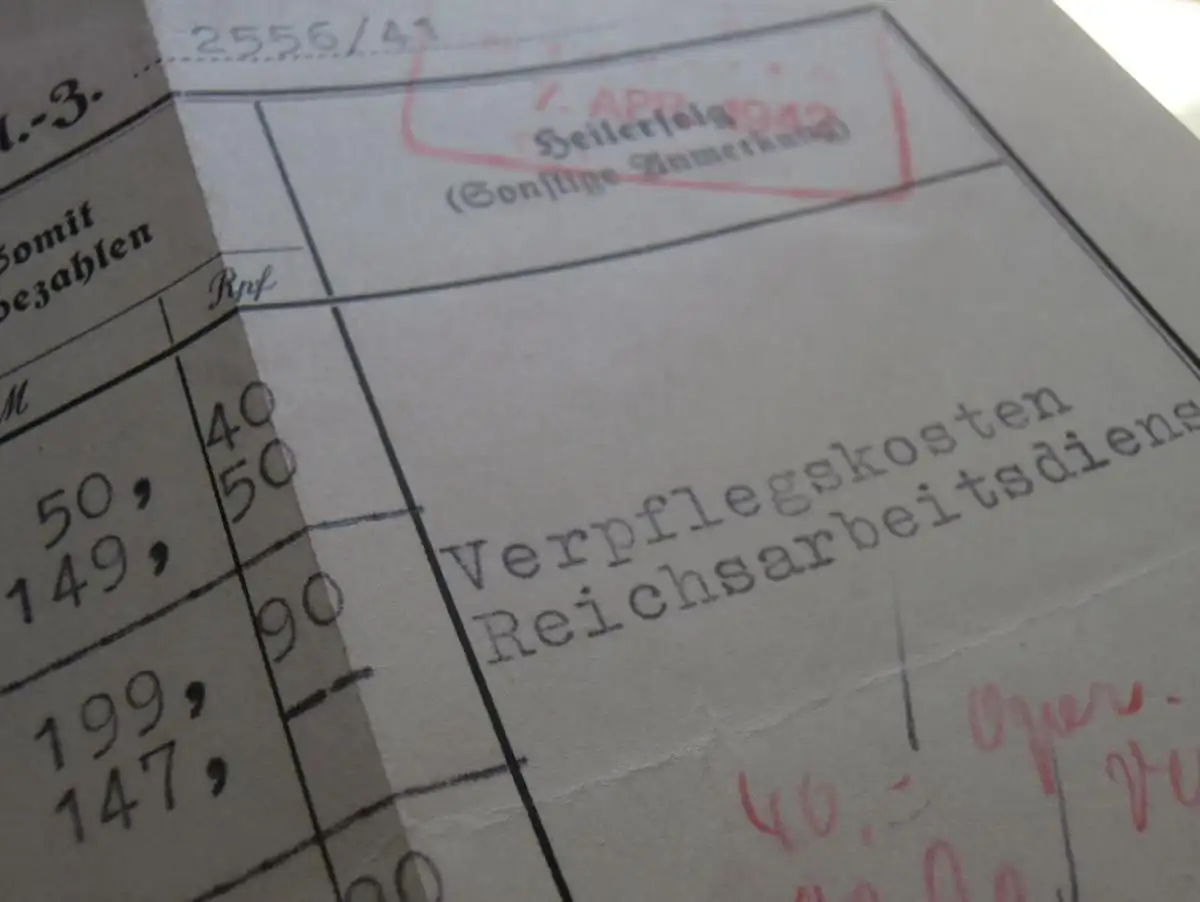 2556/41
.-Z.
APR. 1942
Heilerfolg
(Sonstige Anmerkung)
Somit
bezahlen
Rpf
M
40
50, 50
149,
90
199,
147,
90
Verpflegskosten
Reichsarbeitsdiens
40.-
Oper.